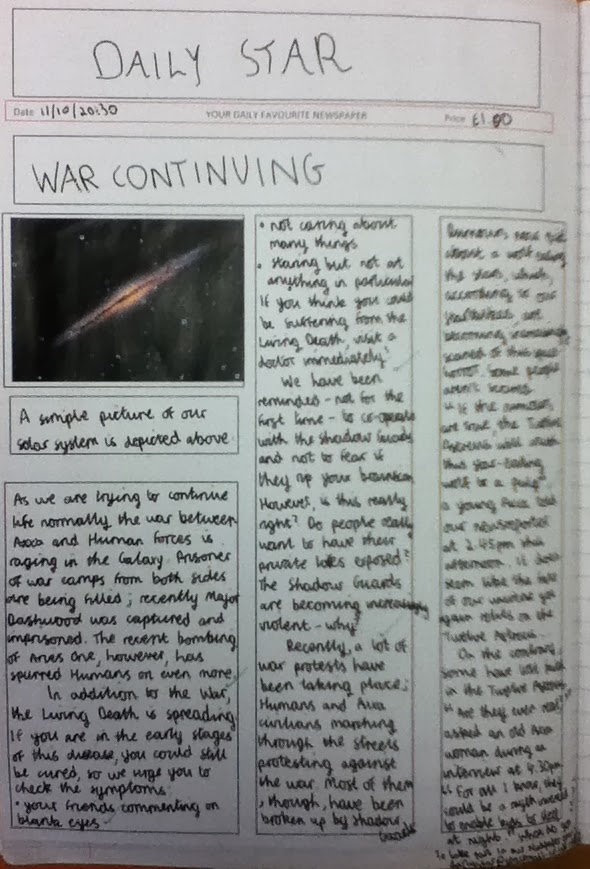 DAILY STAR
Date 11/10/2030
YOUR DAILY FAVOURITE NEWSPAPER
Price £1.00
WAR CONTINUING
A simple picture of our
solar system is depicted above
As we are trying to continue
life normally the war between
Axxa and Human Forces is
raging in the Galaxy. Prisoner
of war camps from both sides
are being filled; recently Major
Dashwood was captured and
imprisoned. The recent bombing
of Aries One, however, has
spurred Humans on even more.
In addition to the War,
the Living Death is spreading.
If you are in the early stages
of this disease, you could still
be cured, so we urge you to
check the symptoms:
• your friends commenting on
blank eyes
• not caring about
many things
• staring but not at
anything in particular
If you think you could
be suffering from the
Living Death, visit a
doctor immediately!
We have been
reminded - not for the
first time - to co-operate
with the Shadow Guards
and not to fear if
they rip your brainscan
However, is this really
right? Do people really
want to have their
private lives exposed?
The Shadow Guards
are becoming increasingly
violent - why?
Recently, a lot of
war protests have
been taking place;
Humans and Axxa
civilians marching
through the streets
protesting against
the war. Most of them
, though, have been
broken up by Shadow
Guards
about a wolf eating
the stars, which,
according to our
are
becoming increasingly
scared of this
horror. Some people
aren't
"If the rumours
are true, the Twelve
will
this star-eating
wolf to a pulp"
a young Axxa told
our newsreporter
at 2.45pm this
afternoon. It does
seem like the fate
of our universe yet
again relies on the
Twelve
On the contrary,
some have lost faith
in the Twelve
"Are they even real?"
asked an old Axxa
woman during an
interview at 4.30pm
"For all I know, they
could be a myth invented
to enable kids to sleep
at night! What do you
To take part in our